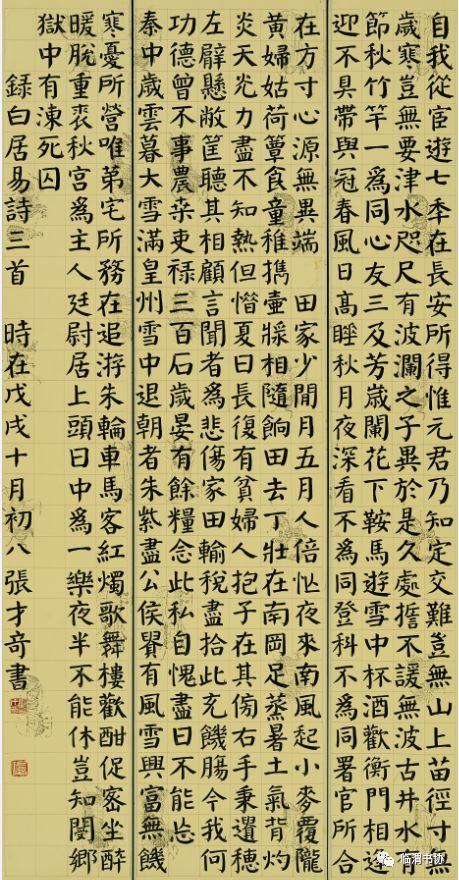 自我從宦遊七秊在長安所得惟元君乃知定交難豈無山上苗徑寸無
歲寒豈無要津水咫尺有波瀾之子異於是久處誓不諼無波古井水有
節秋竹竿一為同心友三及芳歲闌花下鞍馬遊雪中杯酒歡衡門相逢
迎不具帶與冠春風日高睡秋月夜深看不為同登科不為同署官所合
在方寸心源無異端　田家少閒月五月人倍忙夜來南風起小麥覆隴
黃婦姑荷簞食童稚攜壺漿相隨餉田去丁壯在南岡足蒸暑土氣背灼
炎天光力盡不知熱但惜夏日長復有貧婦人抱子在其傍右手秉遺穗
左臂懸敝筐聽其相顧言聞者為悲傷家田輸稅盡拾此充饑腸今我何
功德曾不事農桒吏禄三百石歲晏有餘糧念此私自愧盡日不能忘
秦中歲雲暮大雪滿皇州雪中退朝者朱紫盡公侯貴有風雪興富無饑
寒憂所營唯第宅所務在追游朱輪車馬客紅燭歌舞樓歡酣促密坐醉
暖脫重裘秋官為主人廷尉居上頭日中為一樂夜半不能休豈知閿鄉
獄中有凍死囚
録白居易詩三首　時在戊戌十月初八張才奇書
临渭书协